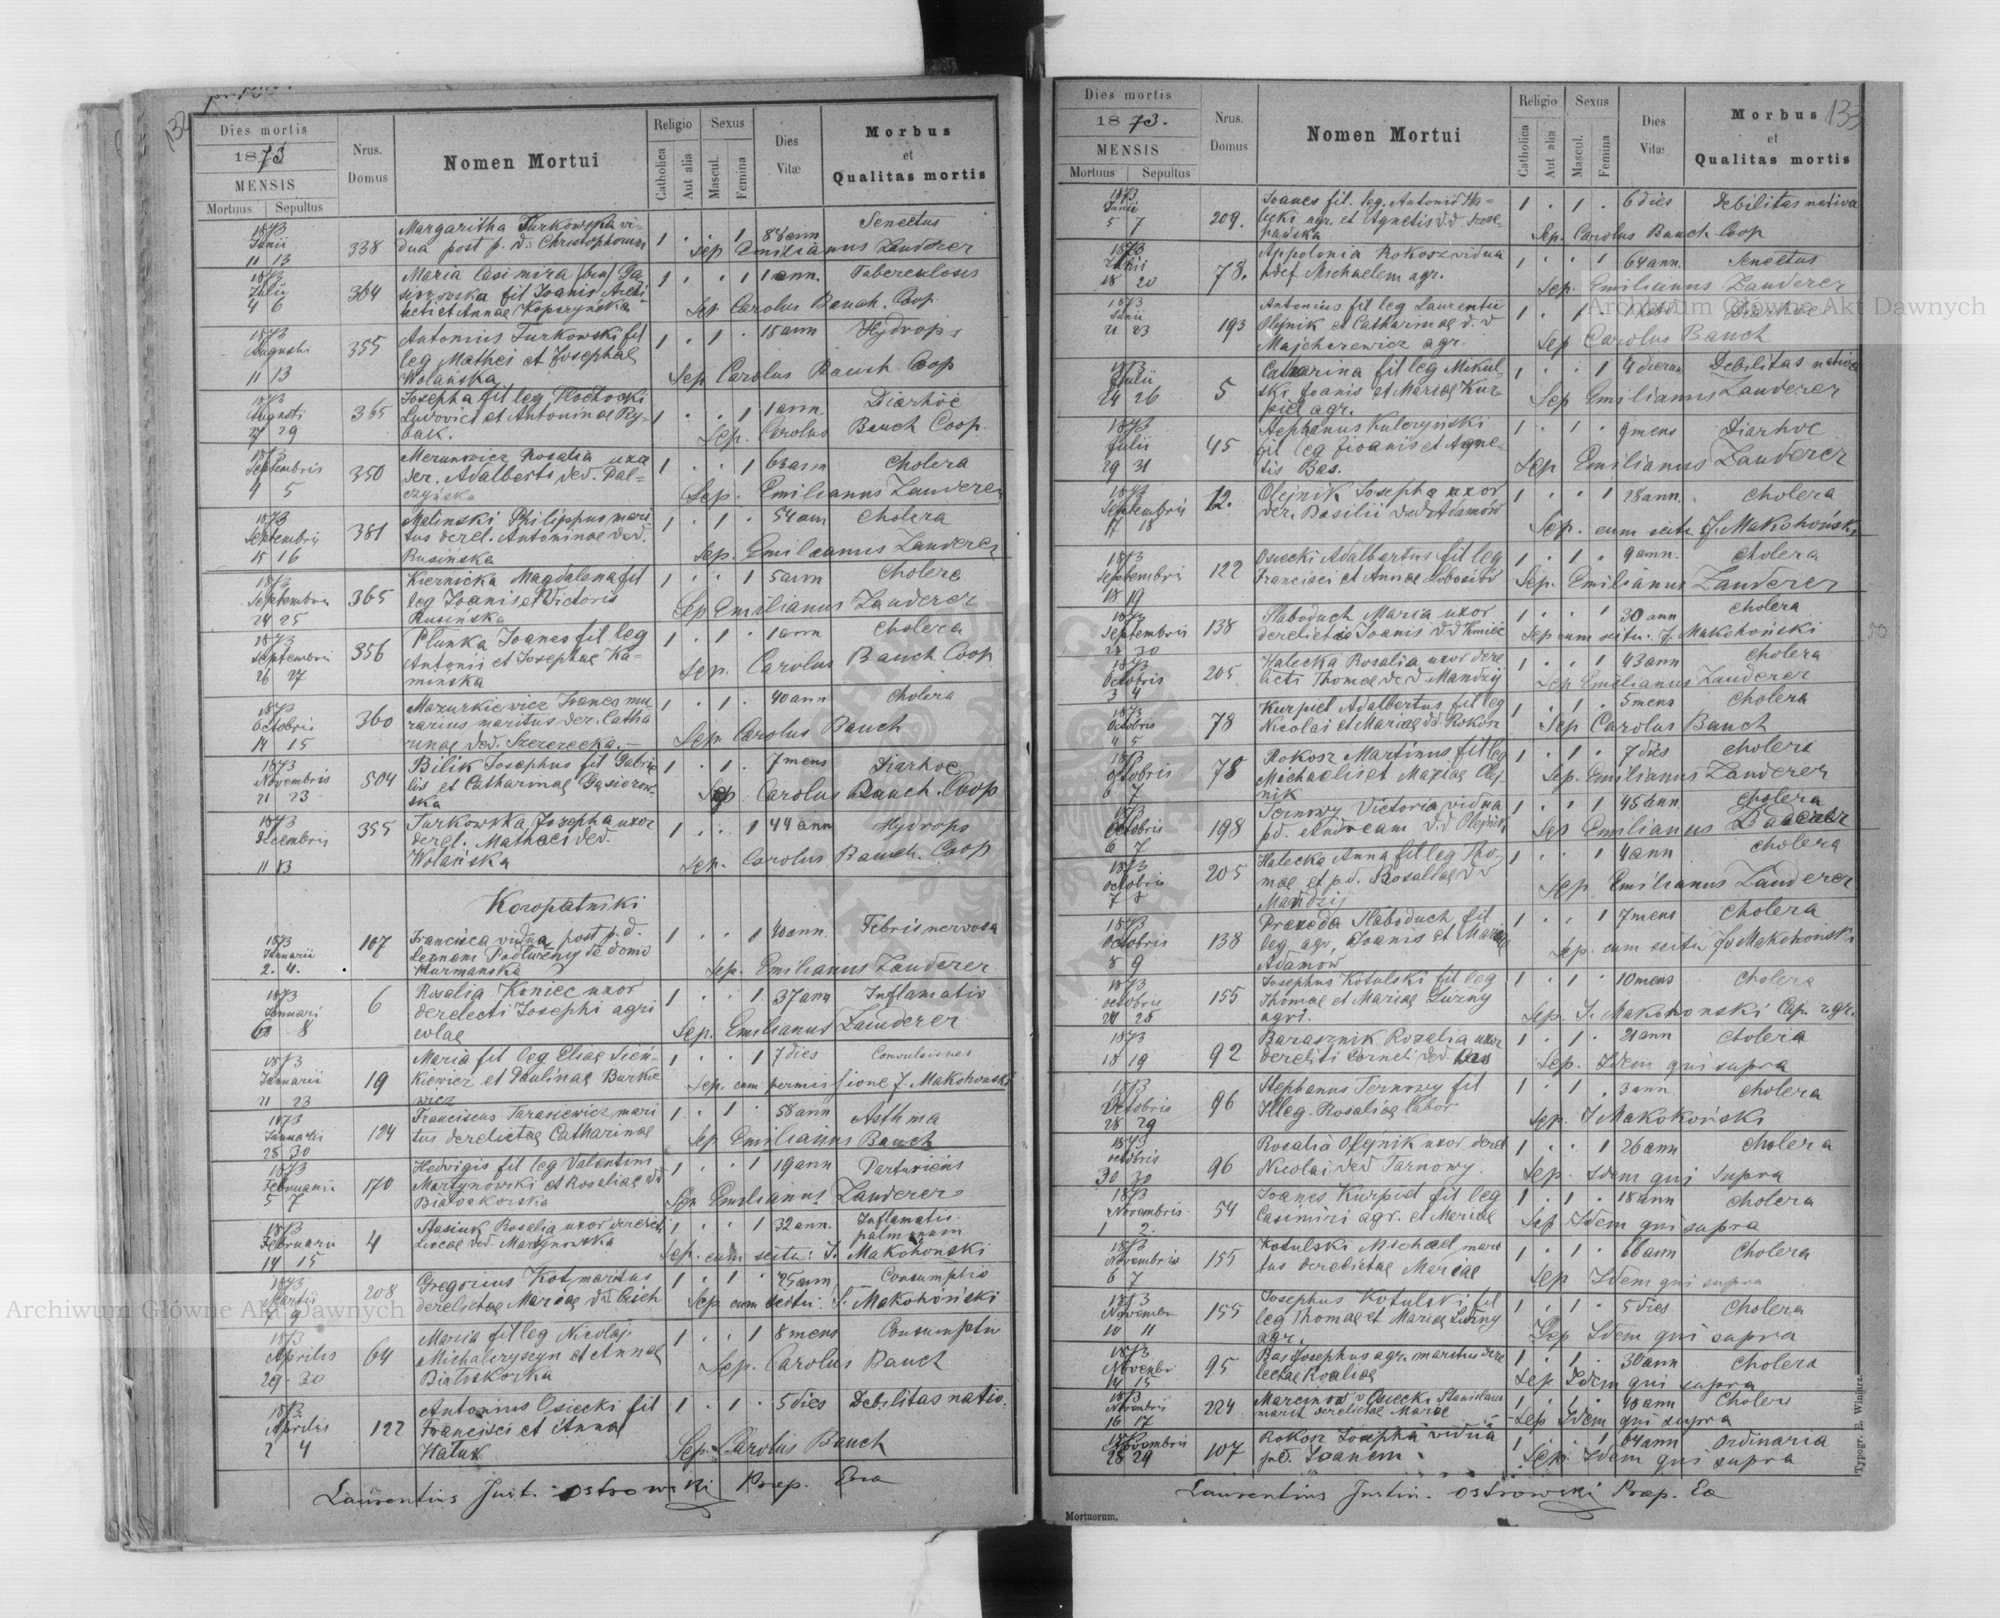 132
Dies mortis
1873
MENSIS
Mortuus Sepultus
Nrus. Domus
Nomen Mortui
Religio
Catholica
Aut alia
Sexus
Mascul.
Femina
Dies Vitæ
Morbus et Qualitas mortis
1873 Junii 11 13
338
Margaritha Turkowska vi-
dua post p. d. Christophorum
1 . . 1 84 ann Senectus
Sep Emilianus Zauderer
1873 Julii 4 6
364
Maria Casimira
fil Joanis Archi
tecti et Annae Kopczyńska
1 . . 1 1 ann. Tuberculosis
Sep Carolus Bauch. Coop.
1873 Augusti 11 13
355
Antonius Turkowski fil
leg Mathei et Josephae
Wolańska
1 . 1 . 15 ann Hydrops
Sep Carolus Bauch Coop
1873 Augusti 27 29
365
Josepha fil leg Płochocki
Ludovici et Antoninae Ry-
bak.
1 . . 1 1 ann Diarhoe
Sep. Carolus Bauch Coop.
1873 Septembris 4 5
350
Merunowicz Rosalia uxo
der. Adalberti ded. Pal-
czyńska
1 . . 1 63 ann Cholera
Sep. Emilianus Zauderer
1873 Septembris 15 16
381
Malinski Philippus mari
tus derel. Antoninae ded.
Rusińska
1 . 1 . 54 ann Cholera
Sep. Emilianus Zauderer
1873 Septembris 24 25
365
Kiernicka Magdalena fil
leg Joanis et Victoris
Rusińska
1 . . 1 5 ann Cholera
Sep Emilianus Zauderer
1873 Septembris 26 27
356
Plunka Joanes fil leg
Antonii et Josephae Ka-
minska
1 . 1 . 1 ann Cholera
Sep. Carolus Bauch Coop
1873 Octobris 14 15
360
Mazurkiewicz Joanes mu-
rarius maritus der. Catha
rinae ded. Szczerecka.
1 . 1 . 40 ann Cholera
Sep Carolus Bauch
1873 Novembris 21 23
504
Bilik Josephus fil Gabrie
lis et Catharinae Gąsiorow-
ska
1 . 1 . 7 mens Diarhoe
Sep Carolus Bauch. Coop
1873 Decembris 11 13
355
Turkowska Josepha uxor
derel. Mathaei ded.
Wolańska
1 . . 1 44 ann Hydrops
Sep. Carolus Bauch. Coop
Koropatniki
1873 Januarii 2. 4.
107
Francisca vidua post p. d.
de domo
Furmanska
1 . . 1 40 ann. Febris nervosa
Sep. Emilianus Zauderer
1873 Januari 6 8
6
Rosalia Koniec uxor
derelecti Josephi agri
colae
1 . . 1 37 ann Inflamatio
Sep. Emilianus Zauderer
1873 Januarii 21 23
19
Maria fil leg Eliae Sień-
kiewicz et Paulinae Burkie
wicz
1 . . 1 7 dies Convulsiones
Sep. cum permissione J. Makohonski
1873 Januarii 28 30
124
Franciscus Tarasiewicz mari
tus derelictae Catharinae
1 . 1 . 58 ann Asthma
Sep Emilianus Bauch
1873 Februarii 5 7
170
Hedvigis fil leg Valentini
Martynowski et Rosaliae dd
Białoskorska
1 . . 1 19 ann Parturiens
Sep Emilianus Zauderer
1873 Februarii 14 15
4
Stasiuk Rosalia uxor derelicti
Lucae ded. Martynowska
1 . . 1 32 ann. Inflamatio
palmonam
Sep. cum scitu: J. Makohonski
1873 Martii 7 9
208
Gregorius Kot maritus
derelictae Mariae dd.
1 . 1 . 25 ann Consumptio
Sep. cum scitu: J. Makohoński
1873 Aprilis 29. 30
64
Maria fil leg Nicolai
Michalczyszyn et Annae
Białoskorka
1 . . 1 8 mens Consumptio
Sep. Carolus Bauch
1873 Aprilis 2 4
122
Antonius Osiecki fil
Francisci et Annae
Hałuk
1 . 1 . 5 dies Debilitas nativ.
Sep. Carolus Bauch
Laurentius Just. Ostrowski Praep.
133
Dies mortis
1873.
MENSIS
Mortuus Sepultus
Nrus. Domus
Nomen Mortui
Religio
Catholica
Aut alia
Sexus
Mascul.
Femina
Dies Vitæ
Morbus et Qualitas mortis
1873 Junii 5 7
209.
Joanes fil. leg. Antonii Ha-
łycki agr. et Agnetis d.d. Szcze-
pańska
1 . 1 . 6 dies Debilitas nativa
Sep. Carolus Bauch Coop
1873 Junii 18 20
78.
Appolonia Rokosz vidua
Michaelem agr.
1 . . 1 64 ann. Senectus
Sep. Emilianus Zauderer
1873 Junii 21 23
193
Antonius fil leg Laurentii
Olejnik et Catharinae d. d
Majcherewicz agr.
1 . 1 . Diarhoe
Sep Carolus Bauch
1873 Julii 24 26
5
Catharina fil leg Mikul-
ski Joanis et Mariae Kur-
piel agr.
1 . . 1 9 dierum Debilitas nativa
Sep Emilianus Zauderer
1873 Julii 29 31
45
Stephanus Kulczyński
fil leg Joanis et Agne-
tis Bas.
1 . 1 . 9 mens Diarhoe
Sep Emilianus Zauderer
1873 Septembris 17 18
12.
Olejnik Josepha uxor
der. Basilii ded Adamow
1 . . 1 28 ann. Cholera
Sep. cum scitu J. Makohoński
1873 Septembris 18 19
122
Osiecki Adalbertus fil leg
Francisci et Annae
1 . 1 . 9 ann. Cholera
Sep. Emilianus Zauderer
1873 Septembris 30
138
Słaboduch Maria uxor
derelictae Joanis d.d Kmieć
1 . . 1 30 ann Cholera
Sep cum scitu: J. Makohoński
50
1873 Octobris 3 4
205
Halecka Rosalia uxor dere
licti Thomae ded Mandzij
1 . . 1 43 ann Cholera
Sep Emilianus Zauderer
1873 Octobris 4 5
78
Kurpiel Adalbertus fil leg
Nicolai et Mariae dd Rokosz
1 . 1 . 5 mens Cholera
Sep Carolus Bauch
1873 Octobris 6 7
78
Rokosz Martinus fil leg
Michaelis et Mariae Olej
nik
1 . 1 . 7 dies Cholera
Sep. Emilianus Zauderer
1873 Octobris 6 7
198
Ternowy Victoria vidua
pd. Andream d.d Olejnik
1 . . 1 45 ann. Cholera
Sep Emilianus
1873 Octobris 7 8
205
Halecka Anna fil leg Tho-
mae et pd. Rosaliae dd
Mandzij
1 . . 1 4 ann Cholera
Sep Emilianus Zauderer
1873 Octobris 8 9
138
Praxeda Słaboduch fil
leg agr. Joanis et Mariae
Adamow
1 . . 1 7 mens Cholera
Sep. cum scitu J. Makohonski
1873 Octobris 24 25
155
Josephus Kotulski fil leg
Thomae et Mariae Żurny
agri.
1 . 1 . 10 mens Cholera
Sep. J. Makohonski Cap. r.gr.
1873 18 19
92
Barasznik Rozalia uxor
dereliti Corneli ded.
1 . 1 . 21 ann Cholera
Sep. Idem qui supra
1873 Octobris 28 29
96
Stephanus Ternowy fil
Illeg. Rosaliae Tabor
1 . 1 . 3 ann Cholera
Sep. J Makokoński
1873 Octobris 30 30
96
Rosalia Olejnik uxor derel
Nicolai ded Tarnowy.
1 . . 1 26 ann Cholera
Sep. Idem qui Supra
1873 Novembris 1 2.
54
Joanes Kurpiel fil leg
Casimiri agr. et Mariae
1 . 1 . 18 ann Cholera
Sep Idem qui supra
1873 Novembris 6 7
155
Kotulski Michael mari
tus derelictae Mariae
1 . 1 . 66 ann Cholera
Sep Idem qui supra
1873 Novembr 10 11
155
Josephus Kotulski fil
leg Thomae et Mariae Żurny
agr.
1 . 1 . 5 dies Cholera
Sep Idem qui supra
1873 Novembr 14 15
95
Bas Josephus agr. maritus dere
lectae Roaliae
1 . 1 . 30 ann Cholera
Sep Idem qui supra
1873 Novembris 16 17
224
Marcinów v Osiecki Stanislaus
marit derelictae Mariae
1 . 1 . 40 ann Cholera
Sep Idem qui supra
Novembris 28 29
107
Rokosz Josepha vidua
p.d. Joanem
1 . . 1 64 ann Ordinaria
Sep. Idem qui supra
Laurentius Justin. Ostrowski Praep.
Mortuorum.
Typogr. E. Winiarz.
Archiwum Główne Akt Dawnych
Archiwum Główne Akt Dawnych